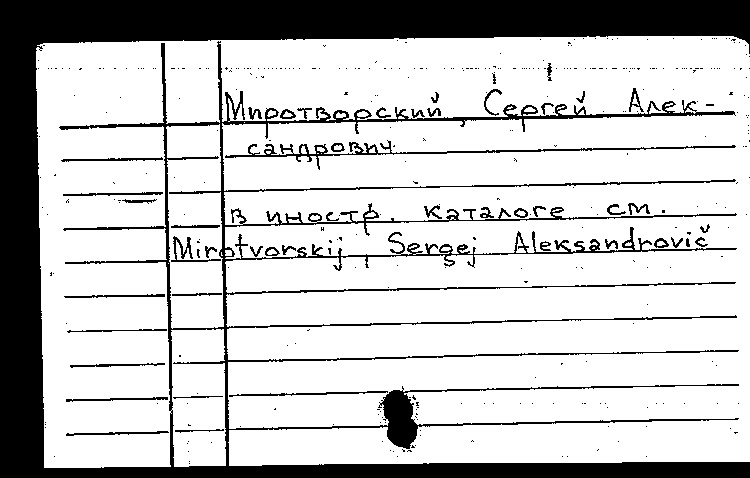 Миротворский, Сергей Алек-
сандрович
в иностр. каталоге см.
Mirotvorskij, Sergej Aleksandrovič